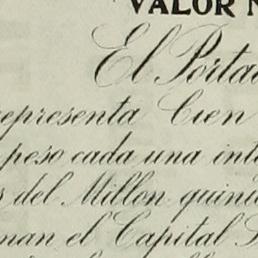 VALOR N
El Portad
representa Cien
peso cada una int
s del Millon quini
man el Capital S